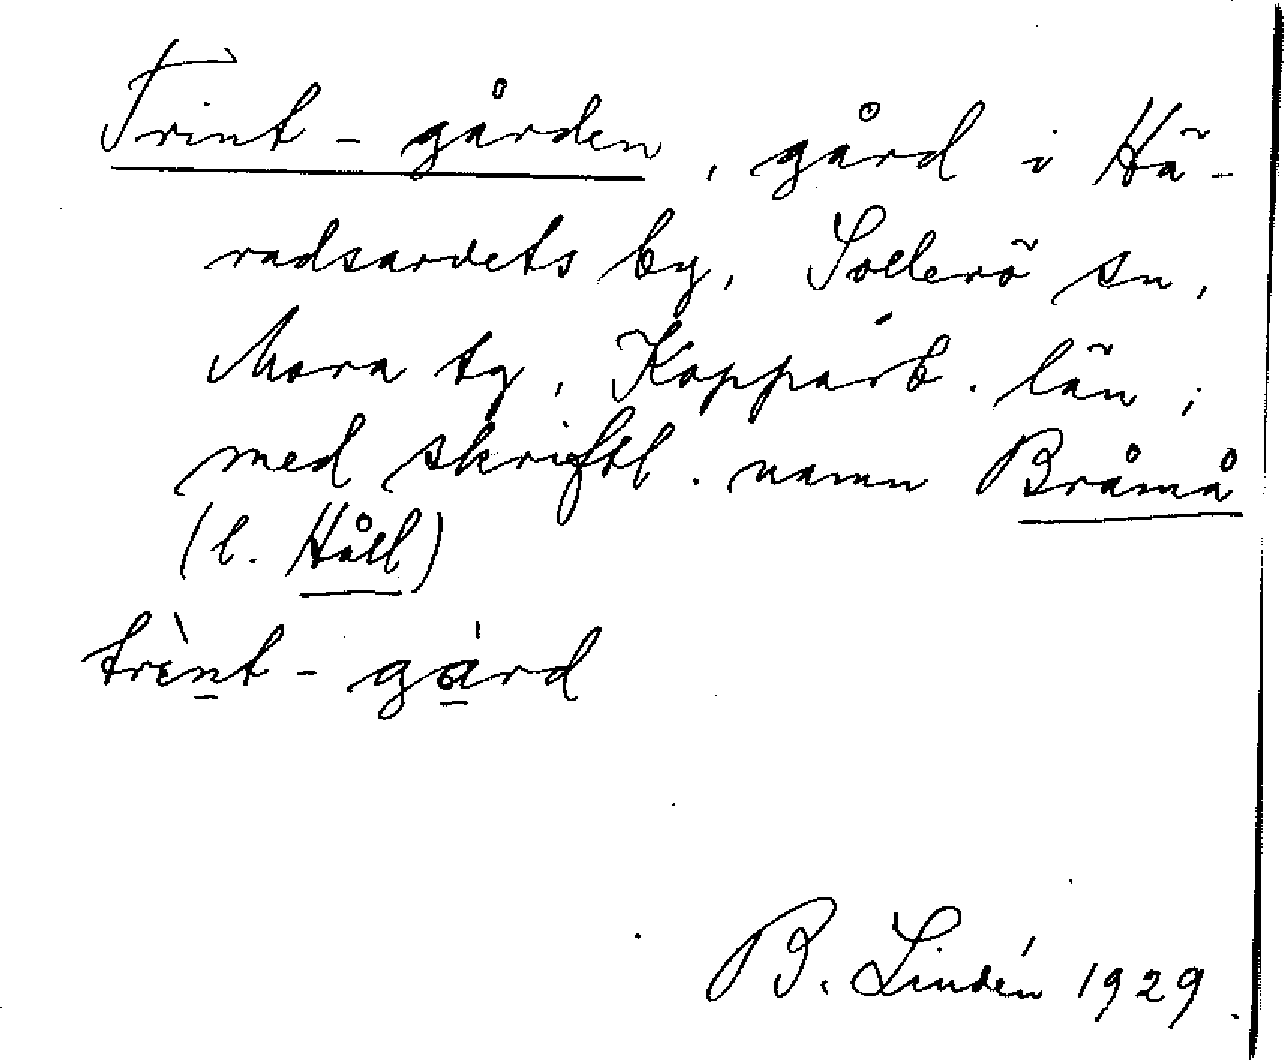 Trint-gården, gård i Hä-
radsarvets by, Sollerö sn,
Mora tg, Kopparb. län;
med skriftl. namn Bråmå
(l. Håll)
trìnt-gård
B. Lindén 1929